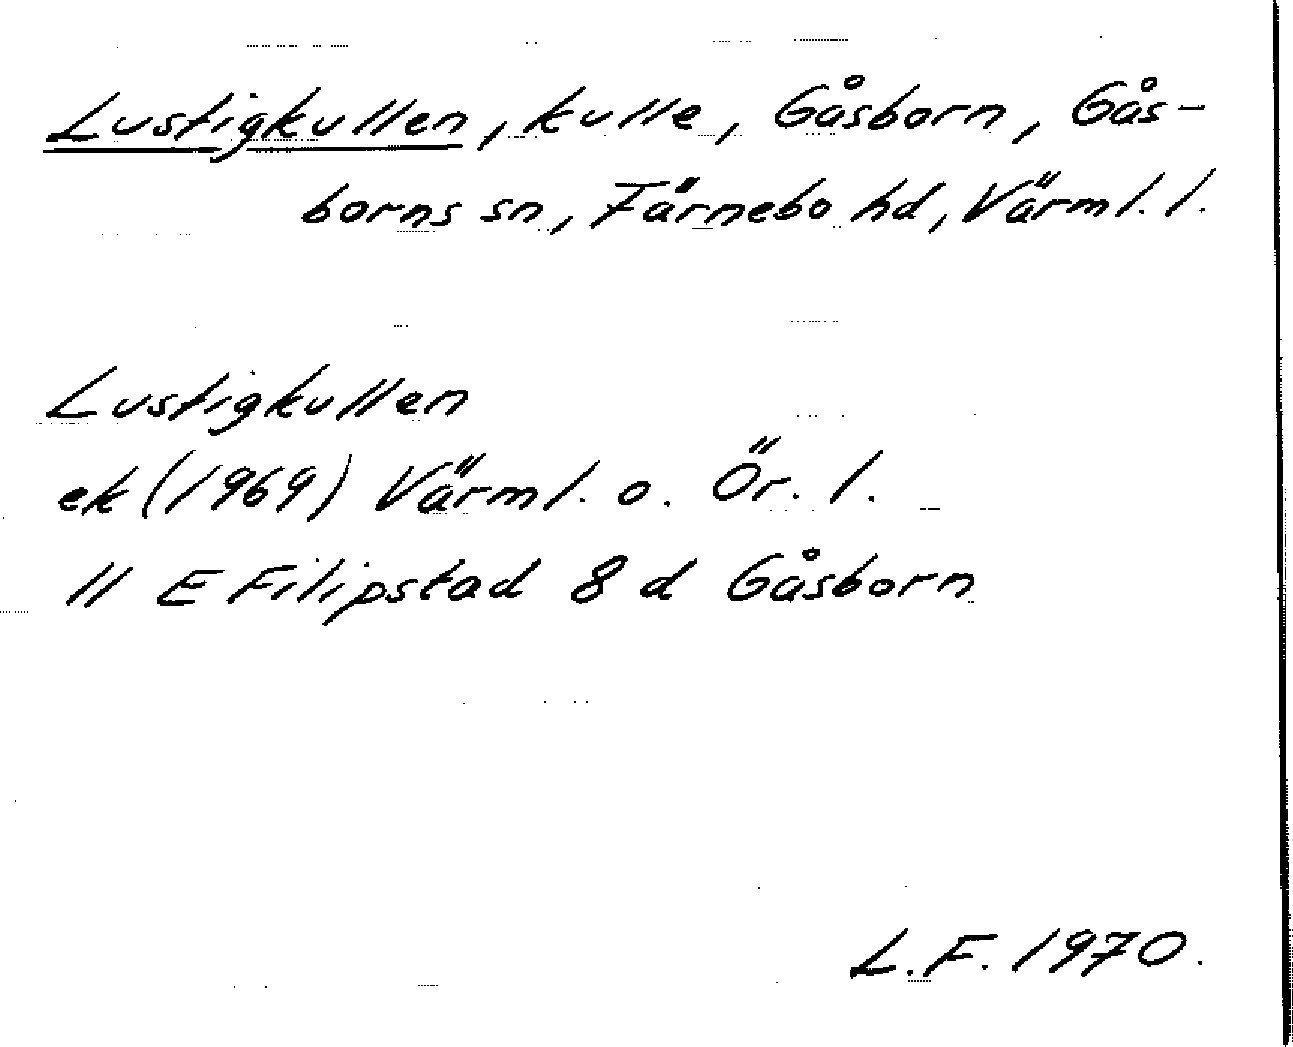 Lustigkullen, kulle, Gåsborn, Gås-
borns sn, Färnebo hd, Värml. l.
Lustigkullen
ek (1969) Värml. o. Ör. l.
11 E Filipstad 8 d Gåsborn
L.F. 1970.